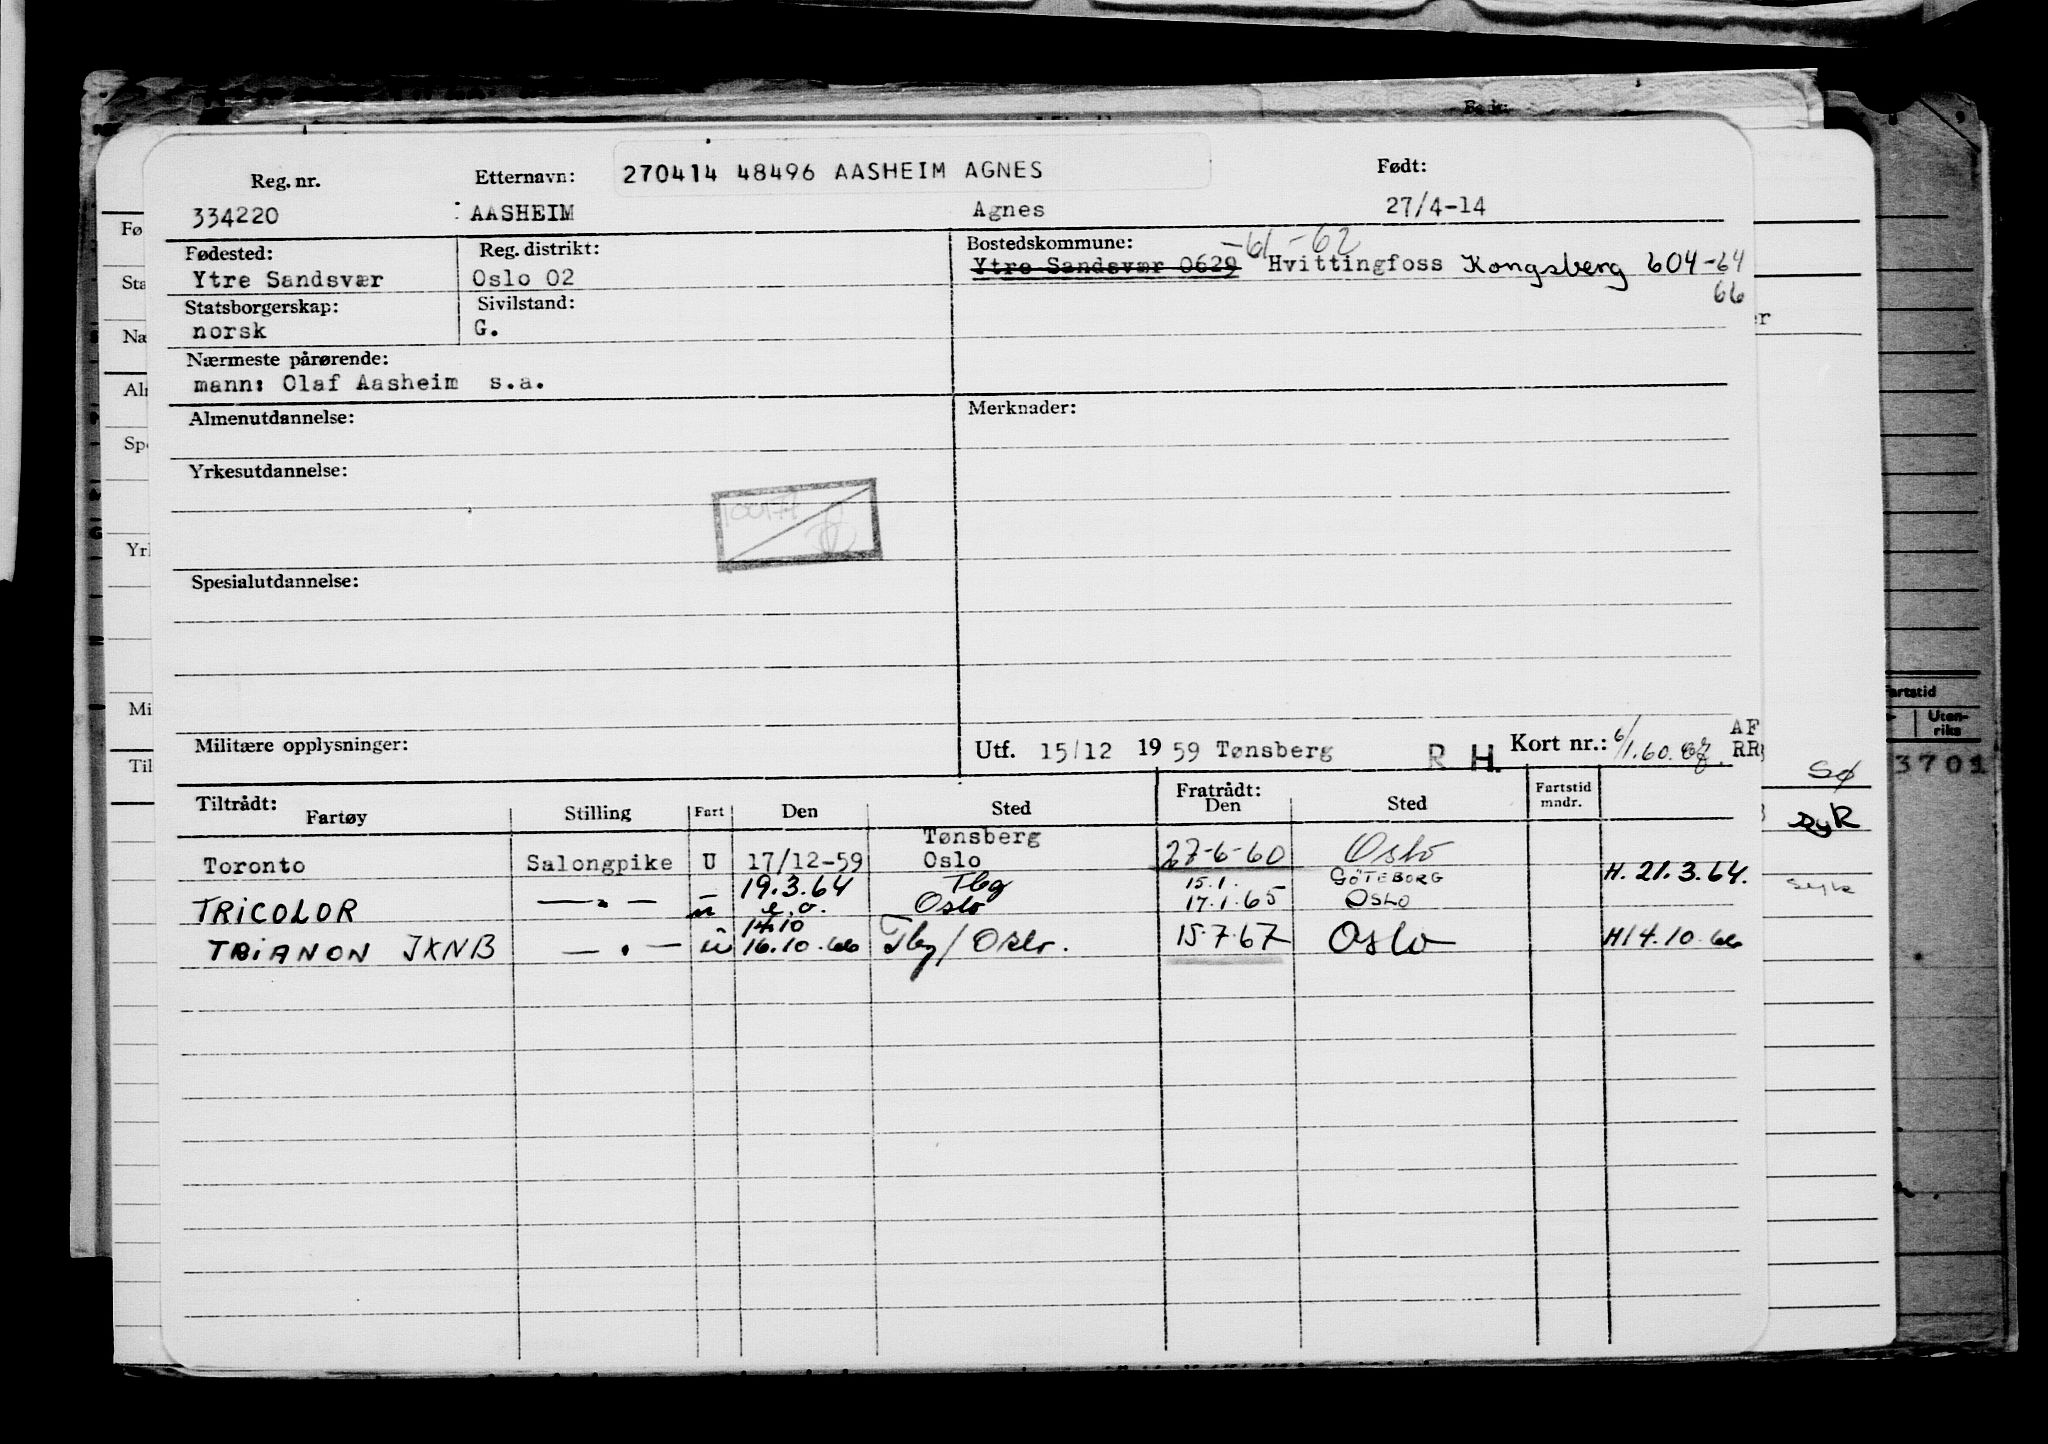 Reg. nr. Etternavn: 270414 48496 AASHEIM AGNES Født:
334220 AASHEIM Agnes 27/4-14
Fødested: Reg. distrikt: Bostedskommune: -61-62
Ytre Sandsvær Oslo 02 Ytre Sandsvær 0629 Hvittingfoss Kongsberg 604-64
66
Statsborgerskap: Sivilstand:
norsk G.
Nærmeste pårørende:
mann: Olaf Aasheim s.a.
Almenutdannelse: Merknader:
Yrkesutdannelse:
Spesialutdannelse:
Militære opplysninger: Utf. 15/12 1959 Tønsberg R H. Kort nr.: 6/1.60. AF
RR
Tiltrådt: Fratrådt:
Fartøy Stilling Fart Den Sted Den Sted Fartstid mndr.
Tønsberg
Toronto Salongpike U 17/12-59 Oslo 27-6-60 Oslo
19.3.64 Tbg 15.1. GÖTEBORG H. 21.3.64.
TRICOLOR — " — u e.o. Oslo 17.1.65 OSLO
14.10
TRIANON JXNB — " — u 16.10.66 Tbg / Oslo. 15.7.67 Oslo H14.10.66
Fø
Sta
Næ
Al
Sp
Yr
Mi
Til
Fartstid
Uten-
riks
3701
Sø